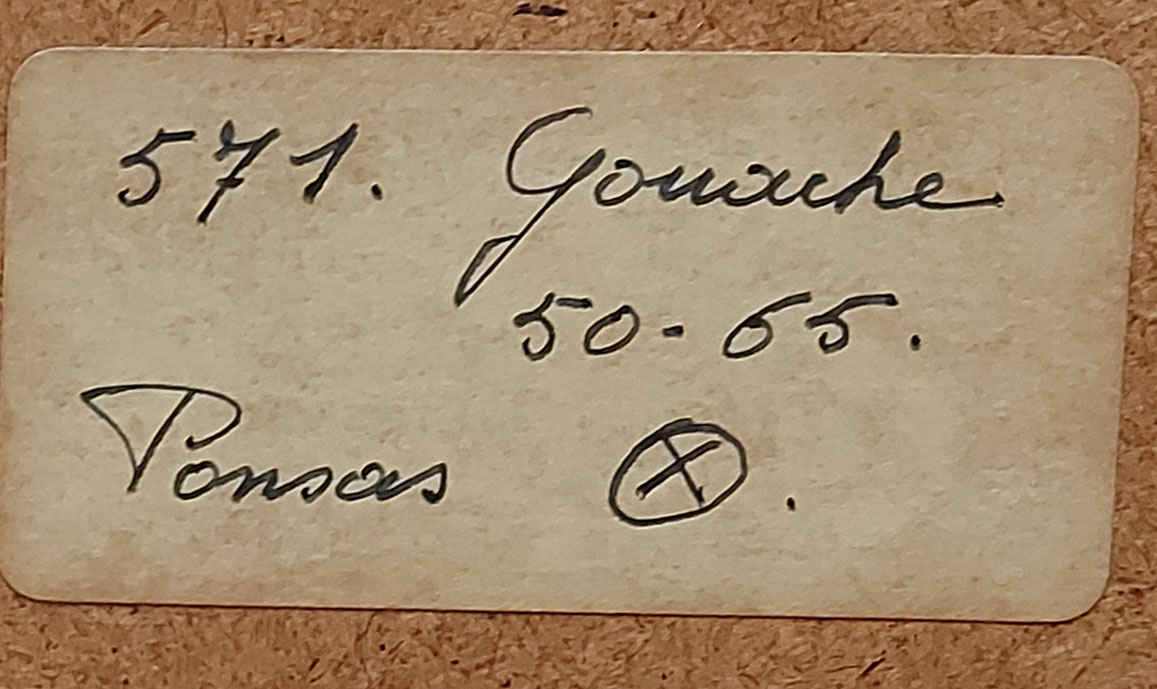 571. Gouache
50-65.
Ponsas ⓧ.